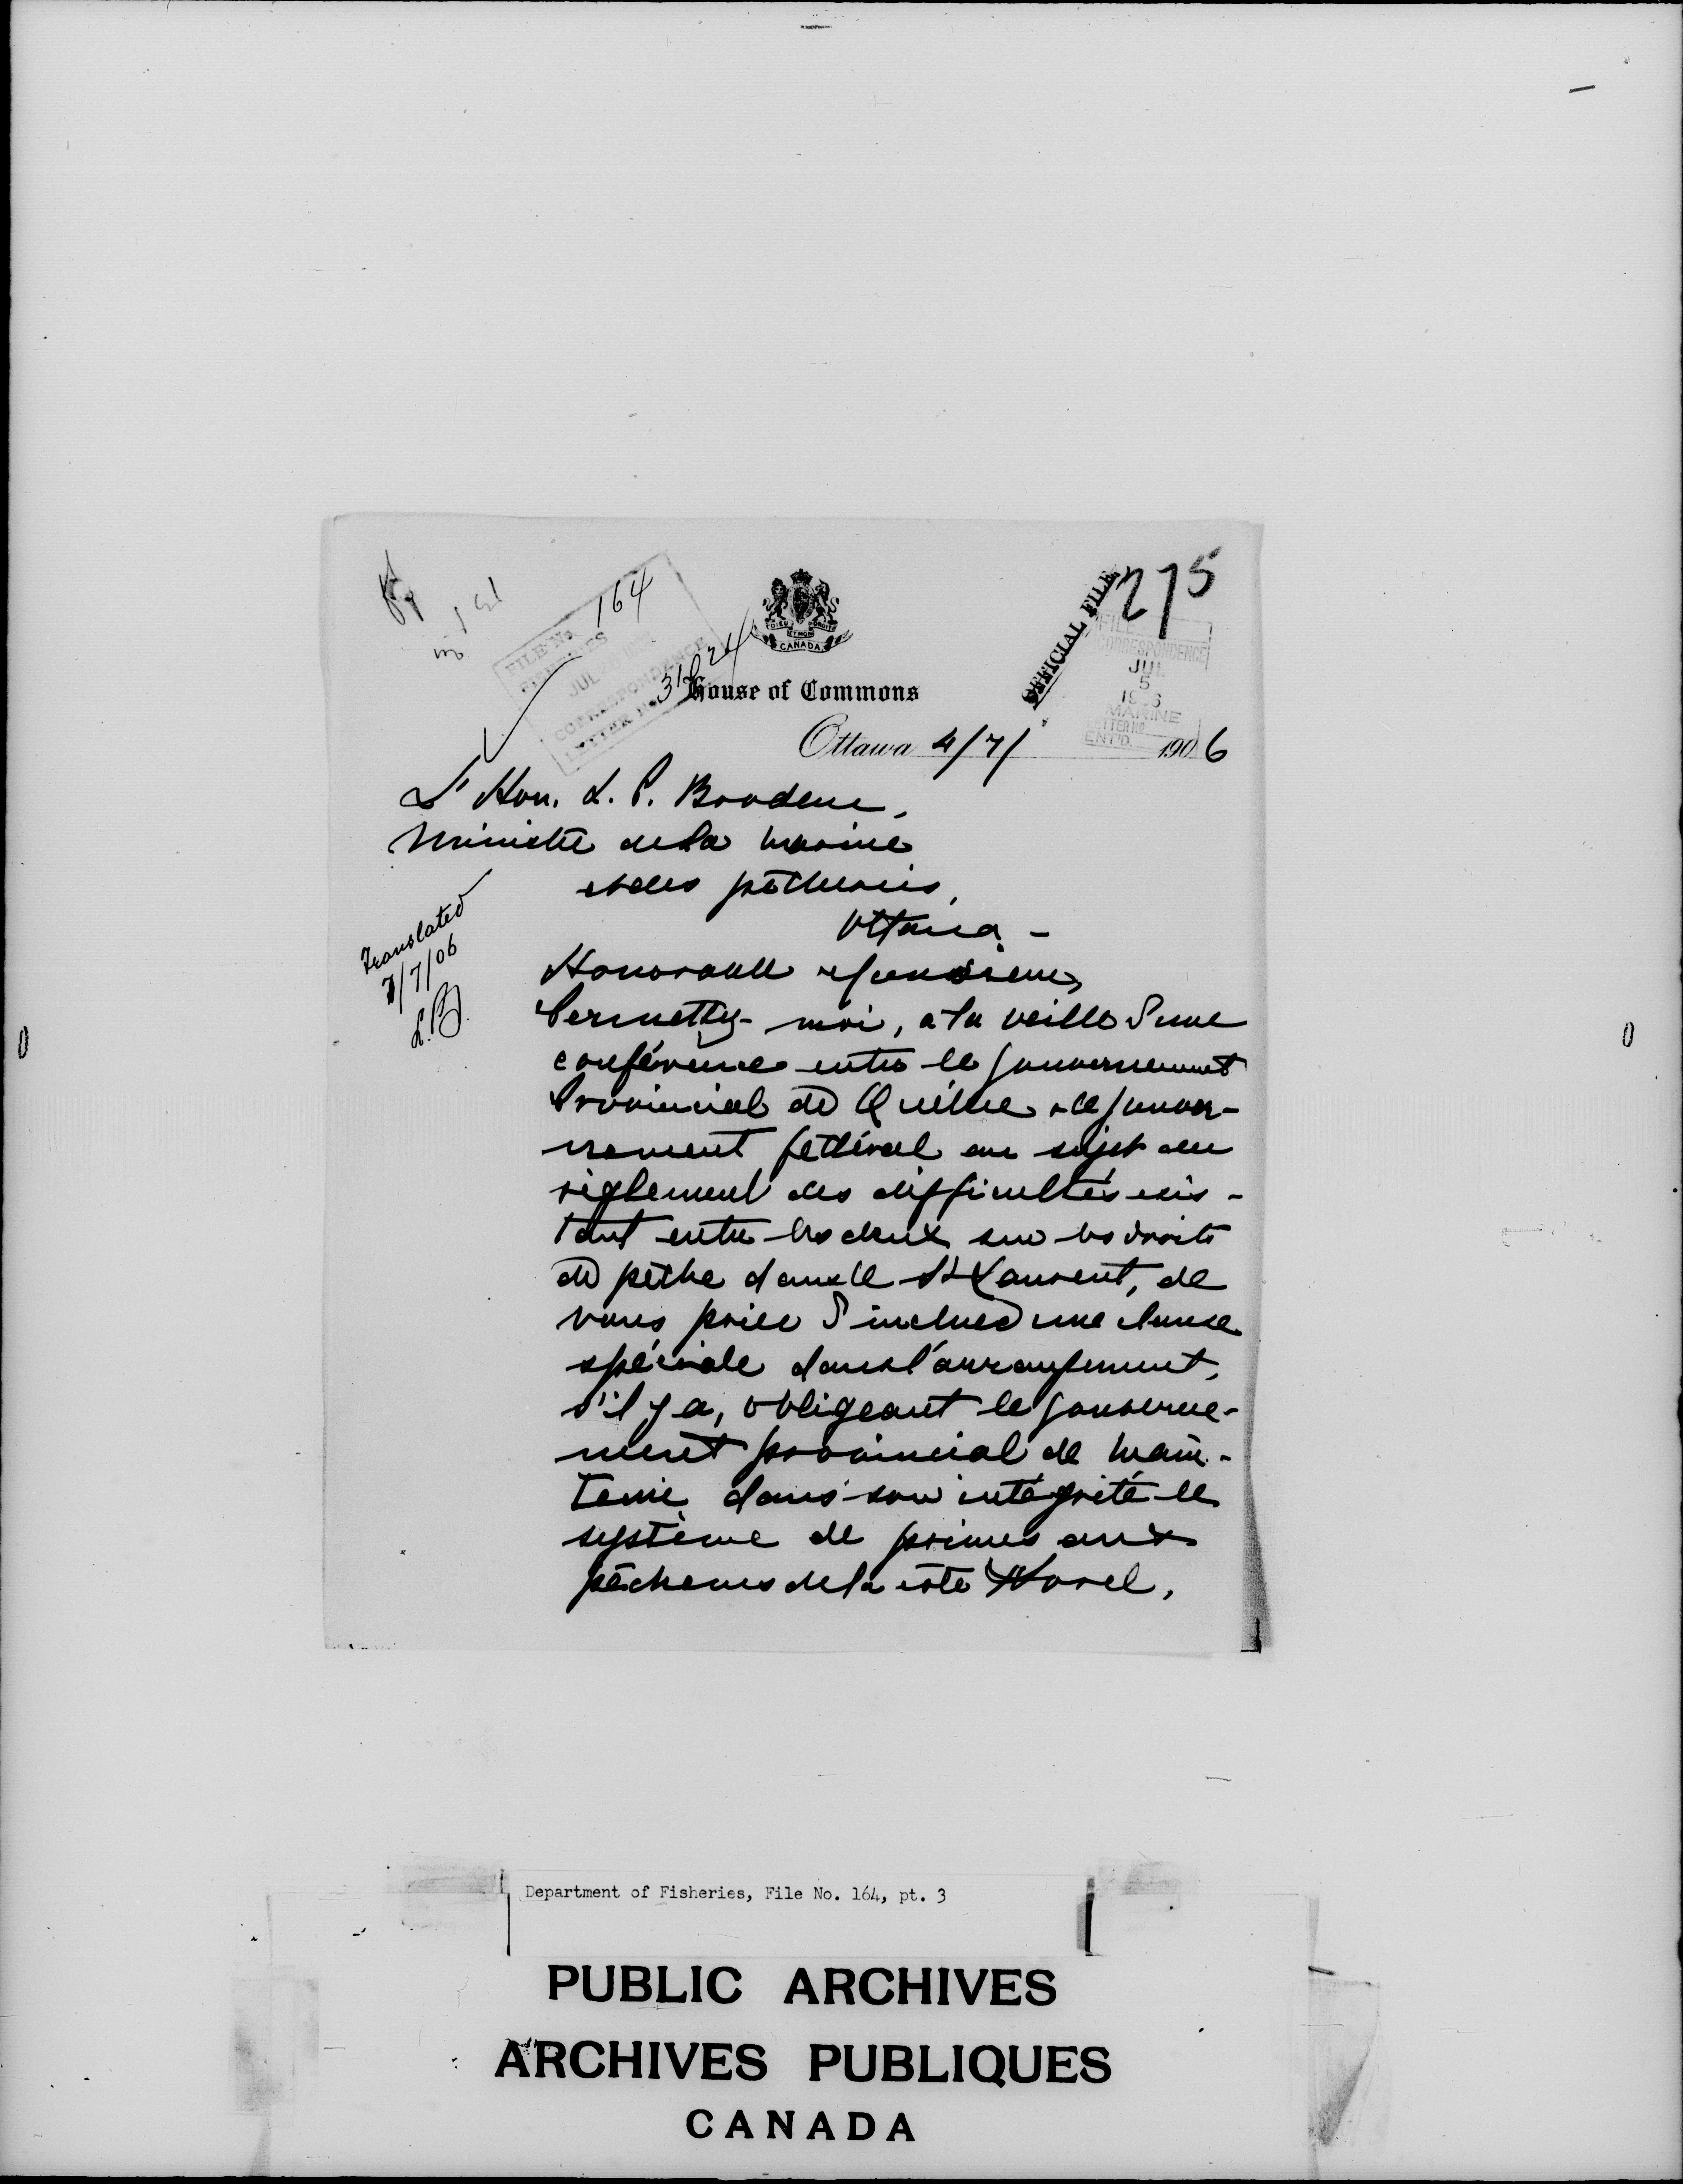 275
OFFICIAL FILE
FILE
CORRESPONDENCE
JUL
5
1906
MARINE
LETTER NO
ENT'D
FILE No. 164
FISHERIES
JUL
CORRESPONDENCE
LETTER No.
DIEU ET MON DROIT
CANADA
House of Commons
Ottawa 4/7/ 1906
L'Hon. L. P. Brodeur,
Ministre de la marine
et des pêcheries,
Ottawa -
Translated
7/7/06
L.B.
Honorable Monsieur,
Permettez-moi, à la veille d'une
conférence entre le gouvernement
Provincial de Québec & le gouver-
nement fédéral au sujet du
règlement des difficultés exis-
tant entre les deux sur les droits
de pêche dans le St Laurent, de
vous prier d'inclure une clause
spéciale dans l'arrangement,
s'il y a, obligeant le gouverne-
ment provincial de main-
tenir dans son intégrité le
système de primes aux
pêcheurs de la côte Nord,
Department of Fisheries, File No. 164, pt. 3
PUBLIC ARCHIVES
ARCHIVES PUBLIQUES
CANADA